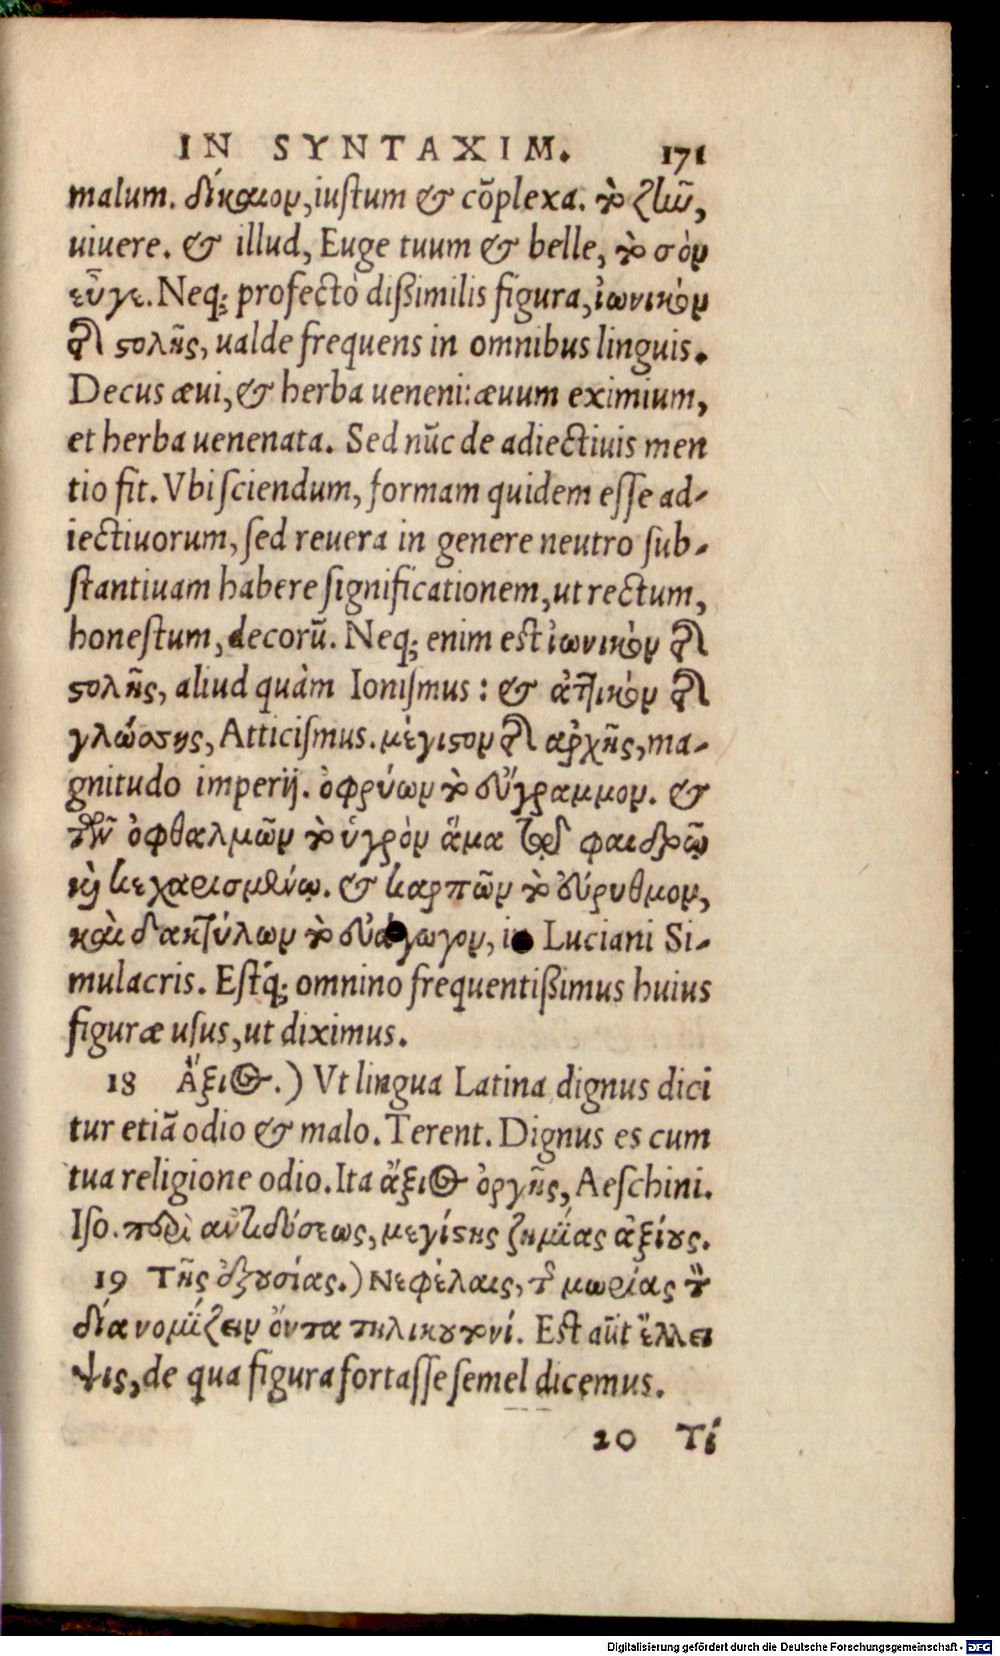 IN SYNTAXIM. 171
malum. δίκαιον, iustum & cõplexa. τὸ ζῆν,
uiuere. & illud, Euge tuum & belle, τὸ σὸν
εὖγε. Neq; profectò dißimilis figura, ἰωνικὸν
τῆς στολῆς, ualde frequens in omnibus linguis.
Decus æui, & herba ueneni: æuum eximium,
et herba uenenata. Sed nũc de adiectiuis men
tio fit. Vbi sciendum, formam quidem esse ad-
iectiuorum, sed reuera in genere neutro sub-
stantiuam habere significationem, ut rectum,
honestum, decorũ. Neq; enim est ἰωνικὸν τῆς
στολῆς, aliud quàm Ionismus: & ἀττικὸν τῆς
γλώσσης, Atticismus. μέγιστον τῆς ἀρχῆς, ma-
gnitudo imperij. ὀφρύων τὸ εὔγραμμον. &
τῶν ὀφθαλμῶν τὸ ὑγρὸν ἅμα τῷ φαιδρῷ
καὶ κεχαρισμένῳ. & καρπῶν τὸ εὔρυθμον,
καὶ δακτύλων τὸ εὐάγωγον, in Luciani Si-
mulacris. Estq́; omnino frequentißimus huius
figuræ usus, ut diximus.
18 Ἄξιος.) Vt lingua Latina dignus dici
tur etiã odio & malo. Terent. Dignus es cum
tua religione odio. Ita ἄξιος ὀργῆς, Aeschini.
Iso. περὶ ἀντιδόσεως, μεγίστης ζημίας ἀξίους.
19 Τῆς ἐξουσίας.) Νεφέλαις, τῆς μωρίας τὸ
δία νομίζειν ὄντα τηλικουτονί. Est aũt ἔλλει
ψις, de qua figura fortasse semel dicemus.
20 Τί